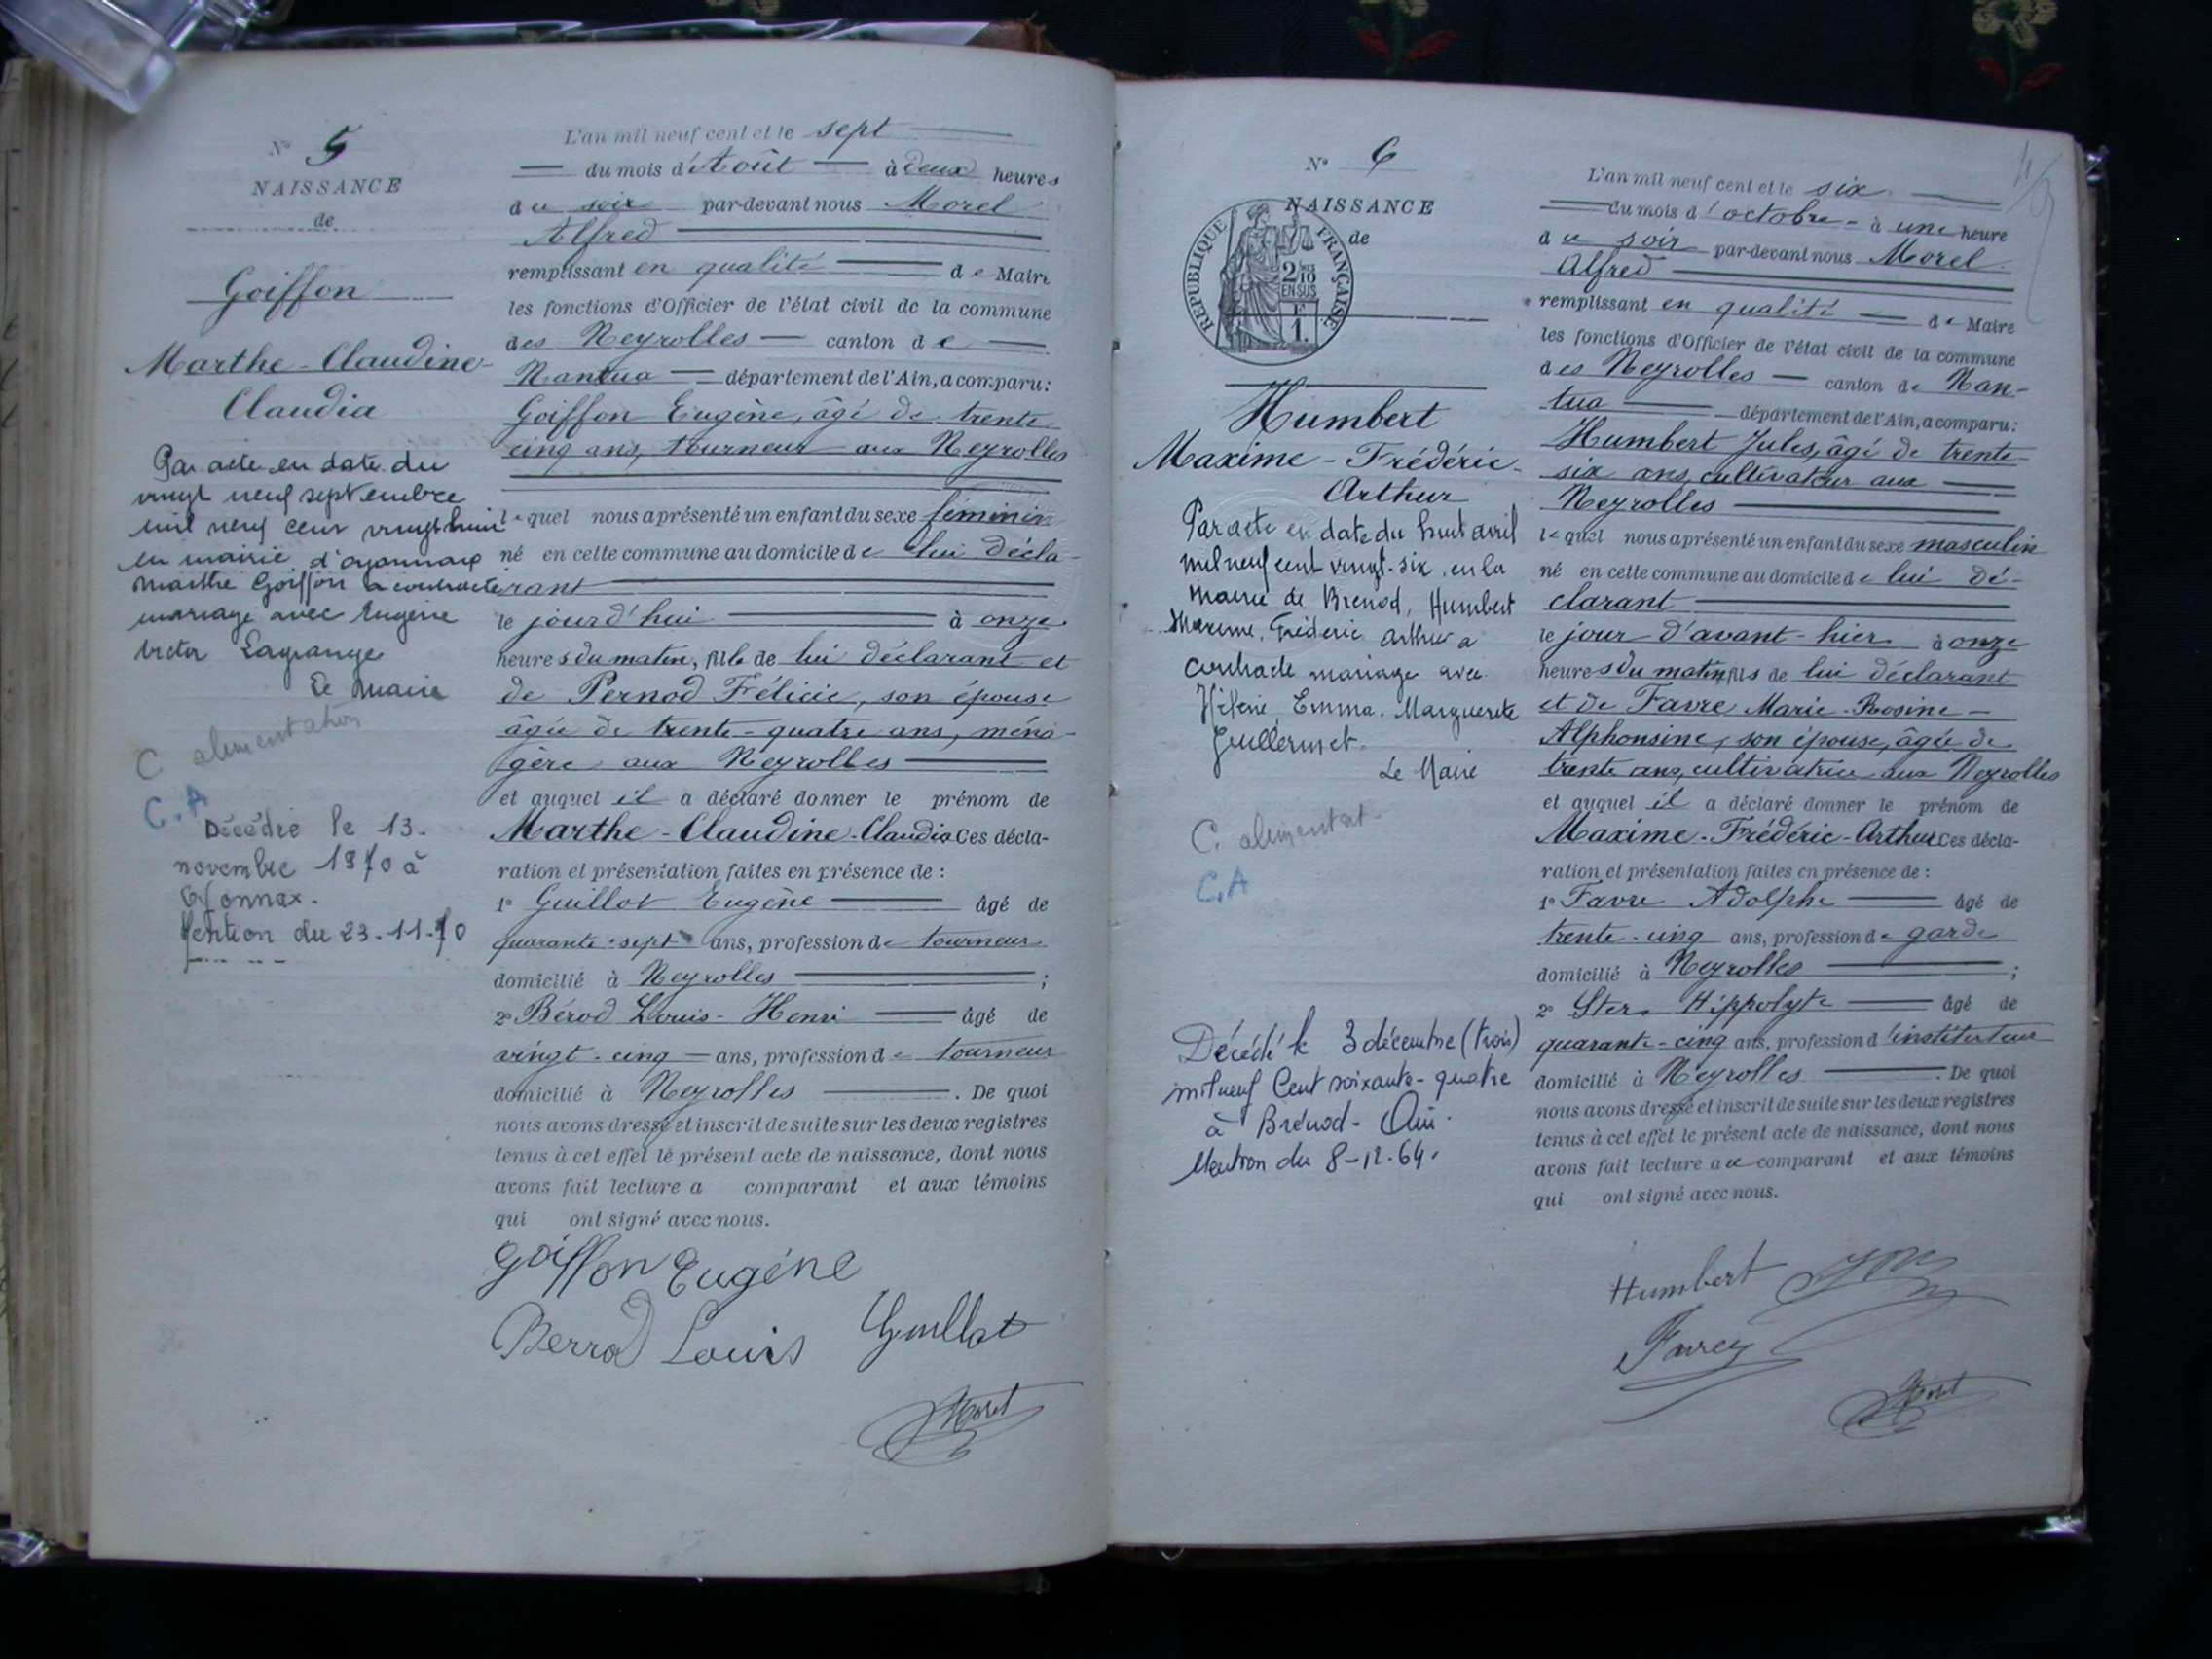 N° 5
NAISSANCE
de
Goiffon
Marthe-Claudine-
Claudia
Par acte en date du
vingt neuf septembre
mil neuf cent vingt huit
en mairie d'oyonnax
Marthe Goiffon a contracté
mariage avec Eugène
Victor Lagrange
Le Maire
C. alimentation
C.A
Décédée le 13
novembre 1970 à
Oyonnax.
Mention du 23-11-70
L'an mil neuf cent et le sept
du mois d'Août à deux heures
du soir par-devant nous Morel
Alfred
remplissant en qualité de Maire
les fonctions d'Officier de l'état civil de la commune
des Neyrolles canton de
Nantua département de l'Ain, a comparu:
Goiffon Eugène, âgé de trente
cinq ans, tourneur aux Neyrolles
lequel nous a présenté un enfant du sexe féminin
né en cette commune au domicile de lui décla-
rant
le jourd'hui à onze
heures du matin, fille de lui déclarant et
de Pernod Félicie, son épouse
âgée de trente-quatre ans, ména-
gère aux Neyrolles
et auquel il a déclaré donner le prénom de
Marthe-Claudine-Claudia Ces décla-
ration et présentation faites en présence de :
1° Guillot Eugène âgé de
quarante-sept ans, profession de tourneur
domicilié à Neyrolles ;
2° Bérod Louis-Henri âgé de
vingt-cinq ans, profession de tourneur
domicilié à Neyrolles . De quoi
nous avons dressé et inscrit de suite sur les deux registres
tenus à cet effet le présent acte de naissance, dont nous
avons fait lecture a comparant et aux témoins
qui ont signé avec nous.
Goiffon Eugène
Berrod Louis Guillot
Morel
N° 6
NAISSANCE
de
REPUBLIQUE FRANÇAISE
2/10
EN SUS
F
1.
Humbert
Maxime-Frédéric-
Arthur
Par acte en date du huit avril
mil neuf cent vingt-six, en la
mairie de Brénod, Humbert
Maxime, Frédéric Arthur a
contracté mariage avec
Hélène, Emma, Marguerite
Guillermet.
Le Maire
C. alimentat.
C.A
Décédé le 3 décembre (trois)
mil neuf Cent soixante-quatre
à Brénod - Ain.
Mention du 8-12-64.
L'an mil neuf cent et le six
du mois d'octobre à une heure
du soir par-devant nous Morel
Alfred
remplissant en qualité de Maire
les fonctions d'Officier de l'état civil de la commune
des Neyrolles canton de Nan-
tua département de l'Ain, a comparu:
Humbert Jules, âgé de trente-
six ans, cultivateur aux
Neyrolles
lequel nous a présenté un enfant du sexe masculin
né en cette commune au domicile de lui dé-
clarant
le jour d'avant-hier à onze
heures du matin, fils de lui déclarant
et de Favre Marie-Rosine-
Alphonsine, son épouse, âgée de
trente ans, cultivatrice aux Neyrolles
et auquel il a déclaré donner le prénom de
Maxime-Frédéric-Arthur Ces décla-
ration et présentation faites en présence de :
1° Favre Adolphe âgé de
trente-cinq ans, profession de garde
domicilié à Neyrolles ;
2° Hippolyte âgé de
quarante-cinq ans, profession d'instituteur
domicilié à Neyrolles . De quoi
nous avons dressé et inscrit de suite sur les deux registres
tenus à cet effet le présent acte de naissance, dont nous
avons fait lecture au comparant et aux témoins
qui ont signé avec nous.
Humbert
Morel